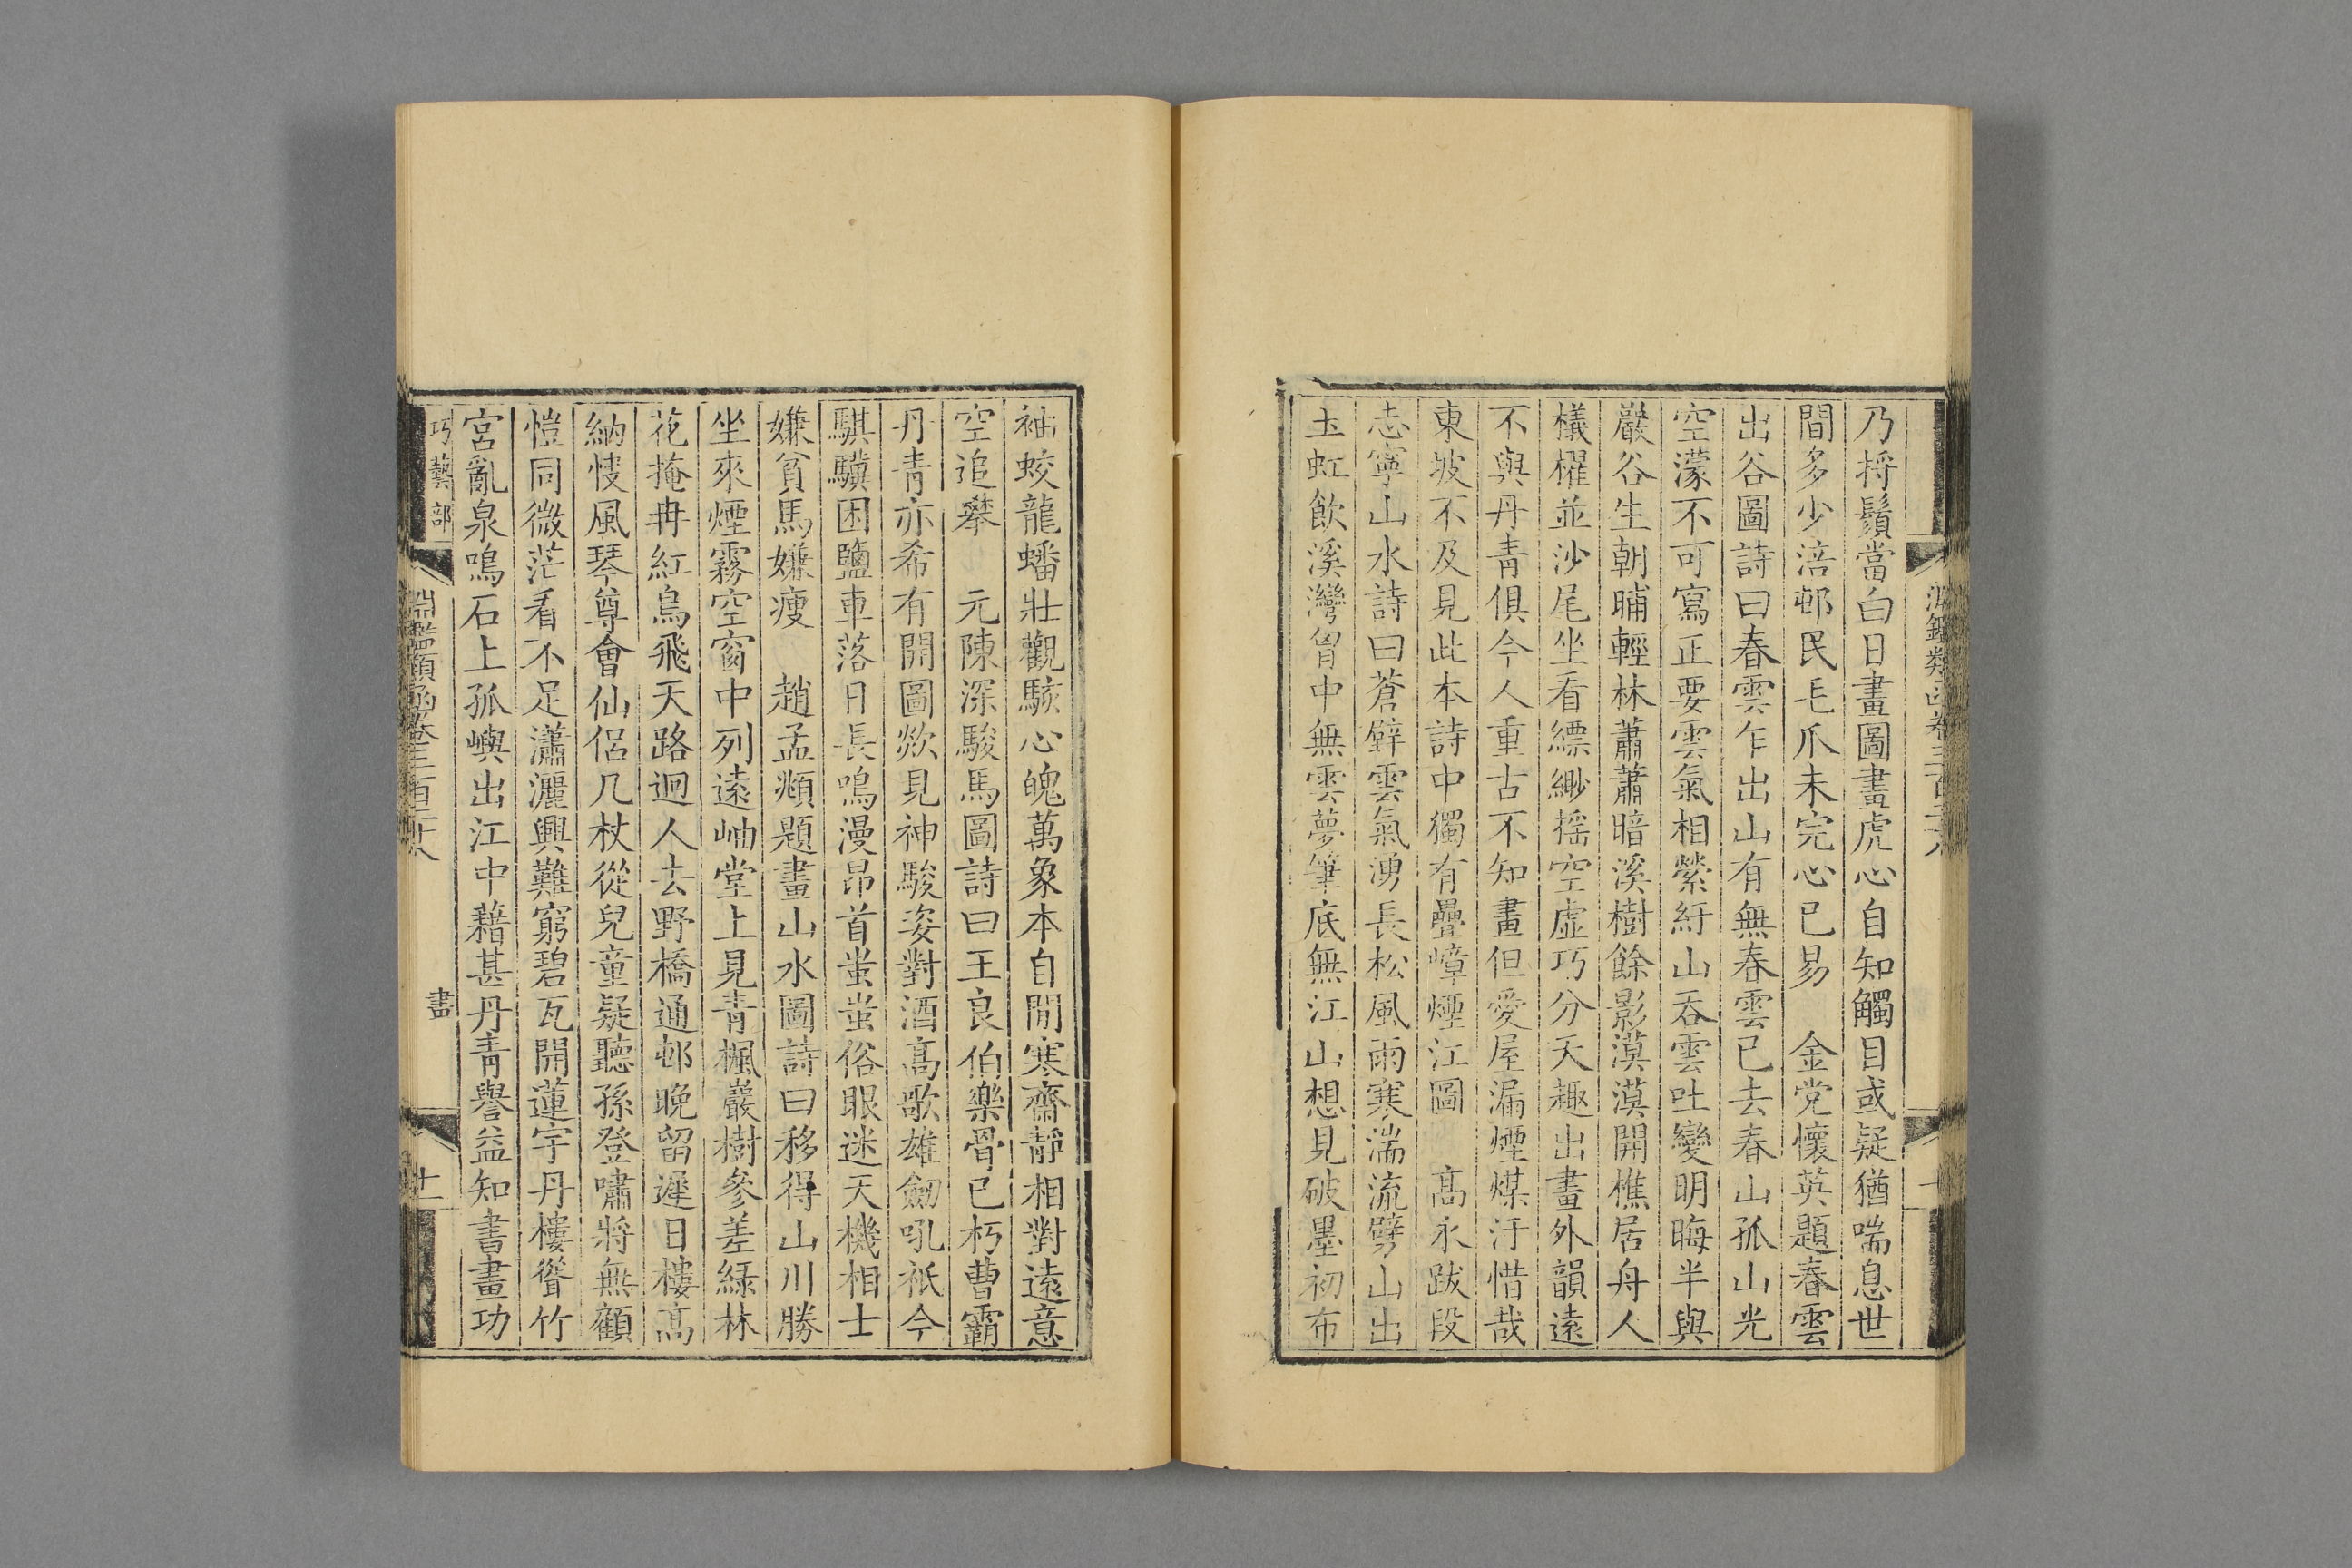 乃捋鬚當白日畫圖畫虎心自知觸目或疑猶喘息世
間多少涪邨民毛爪未完心已易　金党懷英題春雲
出谷圖詩曰春雲乍出山有無春雲已去春山孤山光
空濛不可寫正要雲氣相縈紆山吞雲吐變明晦半與
巖谷生朝晡輕林蕭蕭暗溪樹餘影漠漠開樵居舟人
檥櫂並沙尾坐看縹緲揺空虛巧分天趣出畫外韻遠
不與丹青俱今人重古不知畫但愛屋漏煙煤汙惜哉
東坡不及見此本詩中獨有疊嶂煙江圖　髙永跋段
志寧山水詩曰蒼壁雲氣湧長松風雨寒湍流劈山出
玉虹飲溪灣胷中無雲夢筆底無江山想見破墨初布
袖蛟龍蟠壯觀駭心魄萬象本自閒寒齋靜相對遠意
空追攀　元陳深駿馬圖詩曰王良伯樂骨已朽曹霸
丹青亦希有開圖欻見神駿姿對酒髙歌雄劒吼祇今
騏驥困鹽車落日長鳴漫昂首蚩蚩俗眼迷天機相士
嫌貧馬嫌瘦　趙孟頫題畫山水圖詩曰移得山川勝
坐來煙霧空窗中列遠岫堂上見青楓巖樹參差綠林
花掩冉紅鳥飛天路迥人去野橋通邨晚留遲日樓髙
納快風琴尊會仙侶几杖從兒童疑聽孫登嘯將無顧
愷同微茫看不足瀟灑興難窮碧瓦開蓮宇丹樓聳竹
宮亂泉鳴石上孤嶼出江中藉甚丹青譽益知書畫功
巧藝部　淵鑑類函卷三百二十八　畫　十一